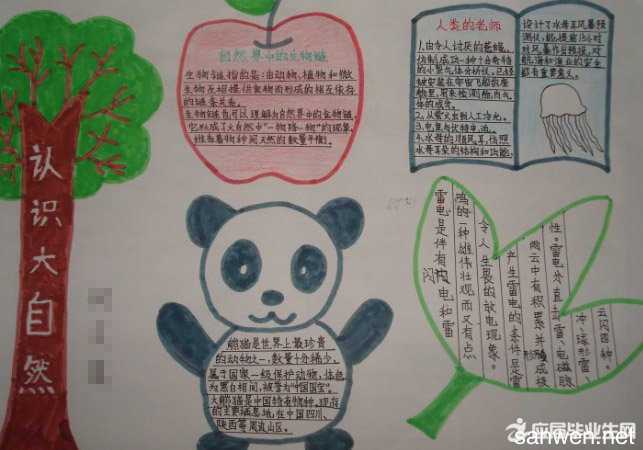 认识大自然
自然界中的生物链
生物链指的是:由动物,植物和微
生物互相提供食物而形成的相互依存
的链条关系。
生物链也可以理解为自然界中的食物链,
它形成了大自然中"一物降一物"的现象,
维系着物种间天然的数量平衡。
人类的老师
1.由令人讨厌的苍蝇,
仿制成功一种十分奇特
的小型气体分析仪,已经
被安装在宇宙飞船的座
舱里,用来检测舱内气
体的成分。
2.从萤火虫到人工冷光。
3.电鱼与伏特电池。
4.水母的顺风耳,仿照
水母耳朵的结构和功能,
设计了水母耳风暴预
测仪,能提前15小时
对风暴作出预报,对
航海和渔业的安全
都有重要意义。
熊猫是世界上最珍贵
的动物之一,数量十分稀少,
属于国家一级保护动物,体色
为黑白相间,被誉为"中国国宝"。
大熊猫是中国特有物种,现存
的主要栖息地,在中国四川、
陕西等周边山区。
雷电是伴有闪电和雷
鸣的一种雄伟壮观而又有点
令人生畏的放电现象。
产生雷电的条件是雷
雨云中有积累并形成极
性。雷电分直击雷、电磁脉
冲、球形雷、
云闪四种。
应届毕业生网
sanwen.net